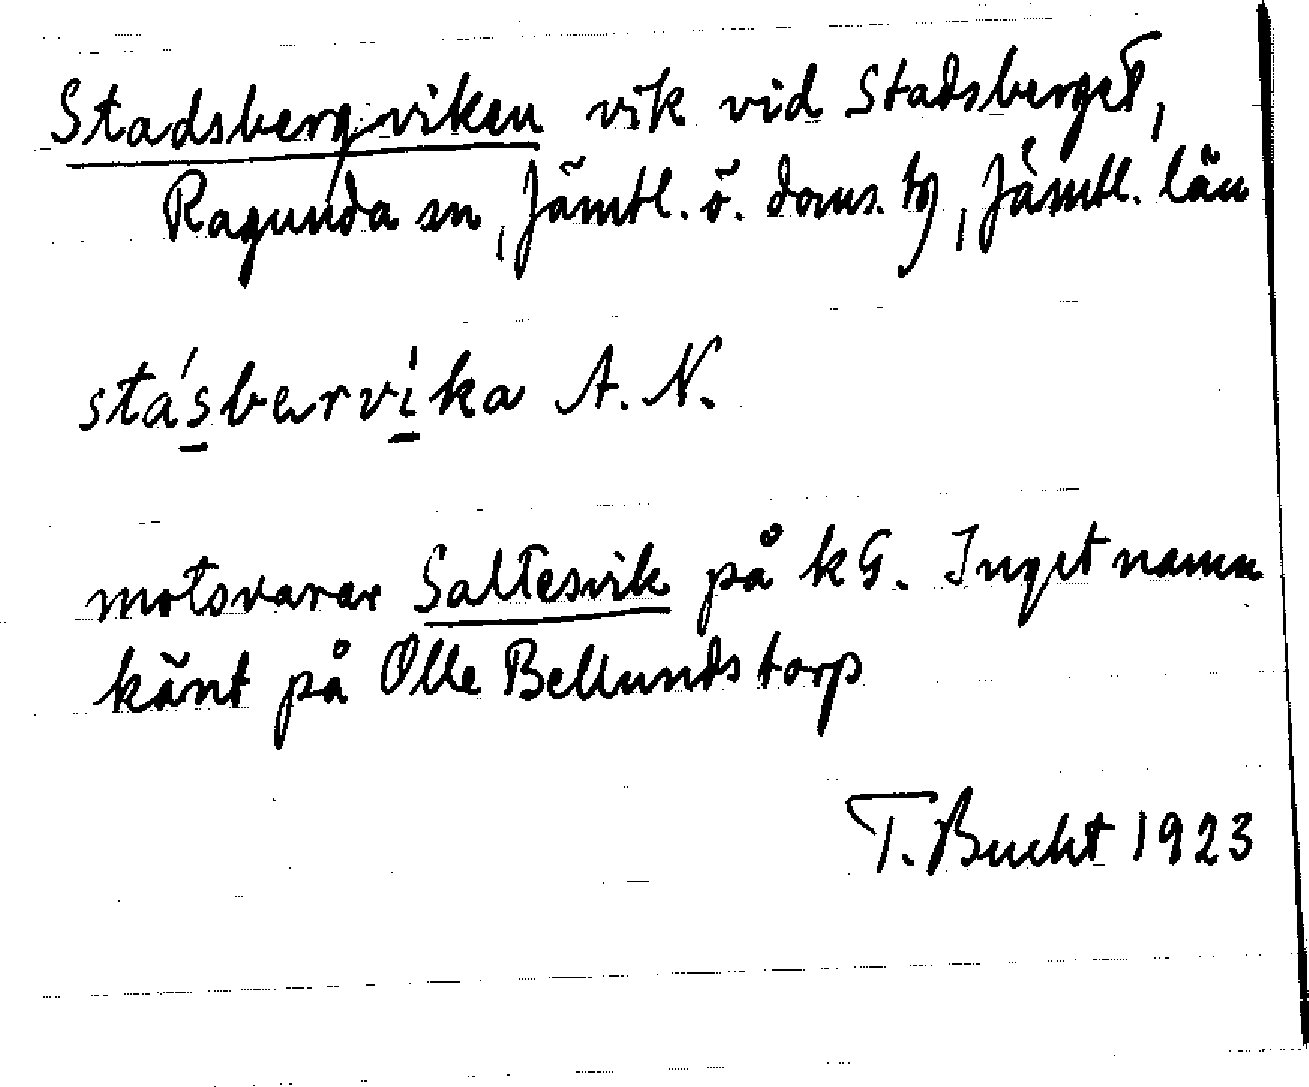 Stadsbergviken vik vid Stadsberget,
Ragunda sn, Jämtl. ö. doms. tg, Jämtl. län
stá's̲berví̲ka A. N.
motsvarar Saltesvik på kG. Inget namn
känt på Olle Bellundstorp
T. Bucht 1923